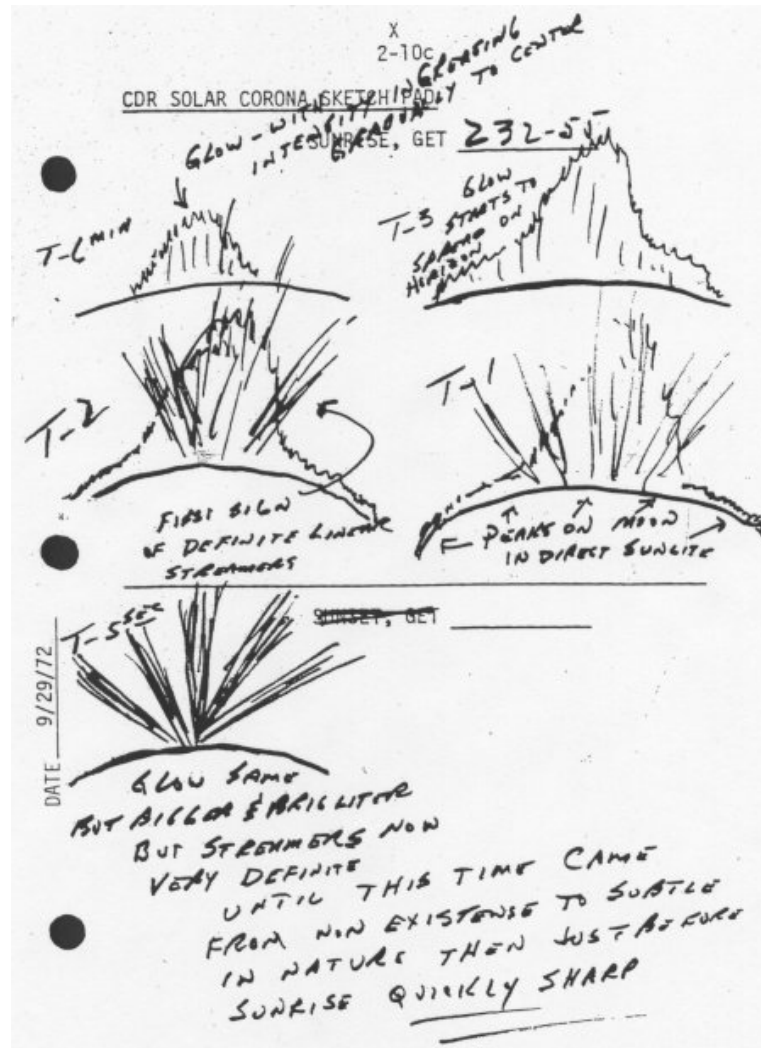 X
2-10c
CDR SOLAR CORONA SKETCH PAD
SUNRISE, GET 232-55
GLOW - WITH
INTENSITY INCREASING
GREADUALLY TO CENTER
T-6 MIN
T-3
GLOW
STARTS TO
SPREAD ON
HORIZON
T-2
FIRST SIGN
OF DEFINITE LINEAR
STREAMERS
T-1
PEAKS ON MOON
IN DIRECT SUNLITE
SUNSET, GET
T-5 SEC
DATE 9/29/72
GLOW SAME
BUT BIGGER & BRIGHTER
BUT STREAMERS NOW
VERY DEFINITE
UNTIL THIS TIME CAME
FROM NON EXISTENSE TO SUBTLE
IN NATURE THEN JUST BEFORE
SUNRISE QUICKLY SHARP